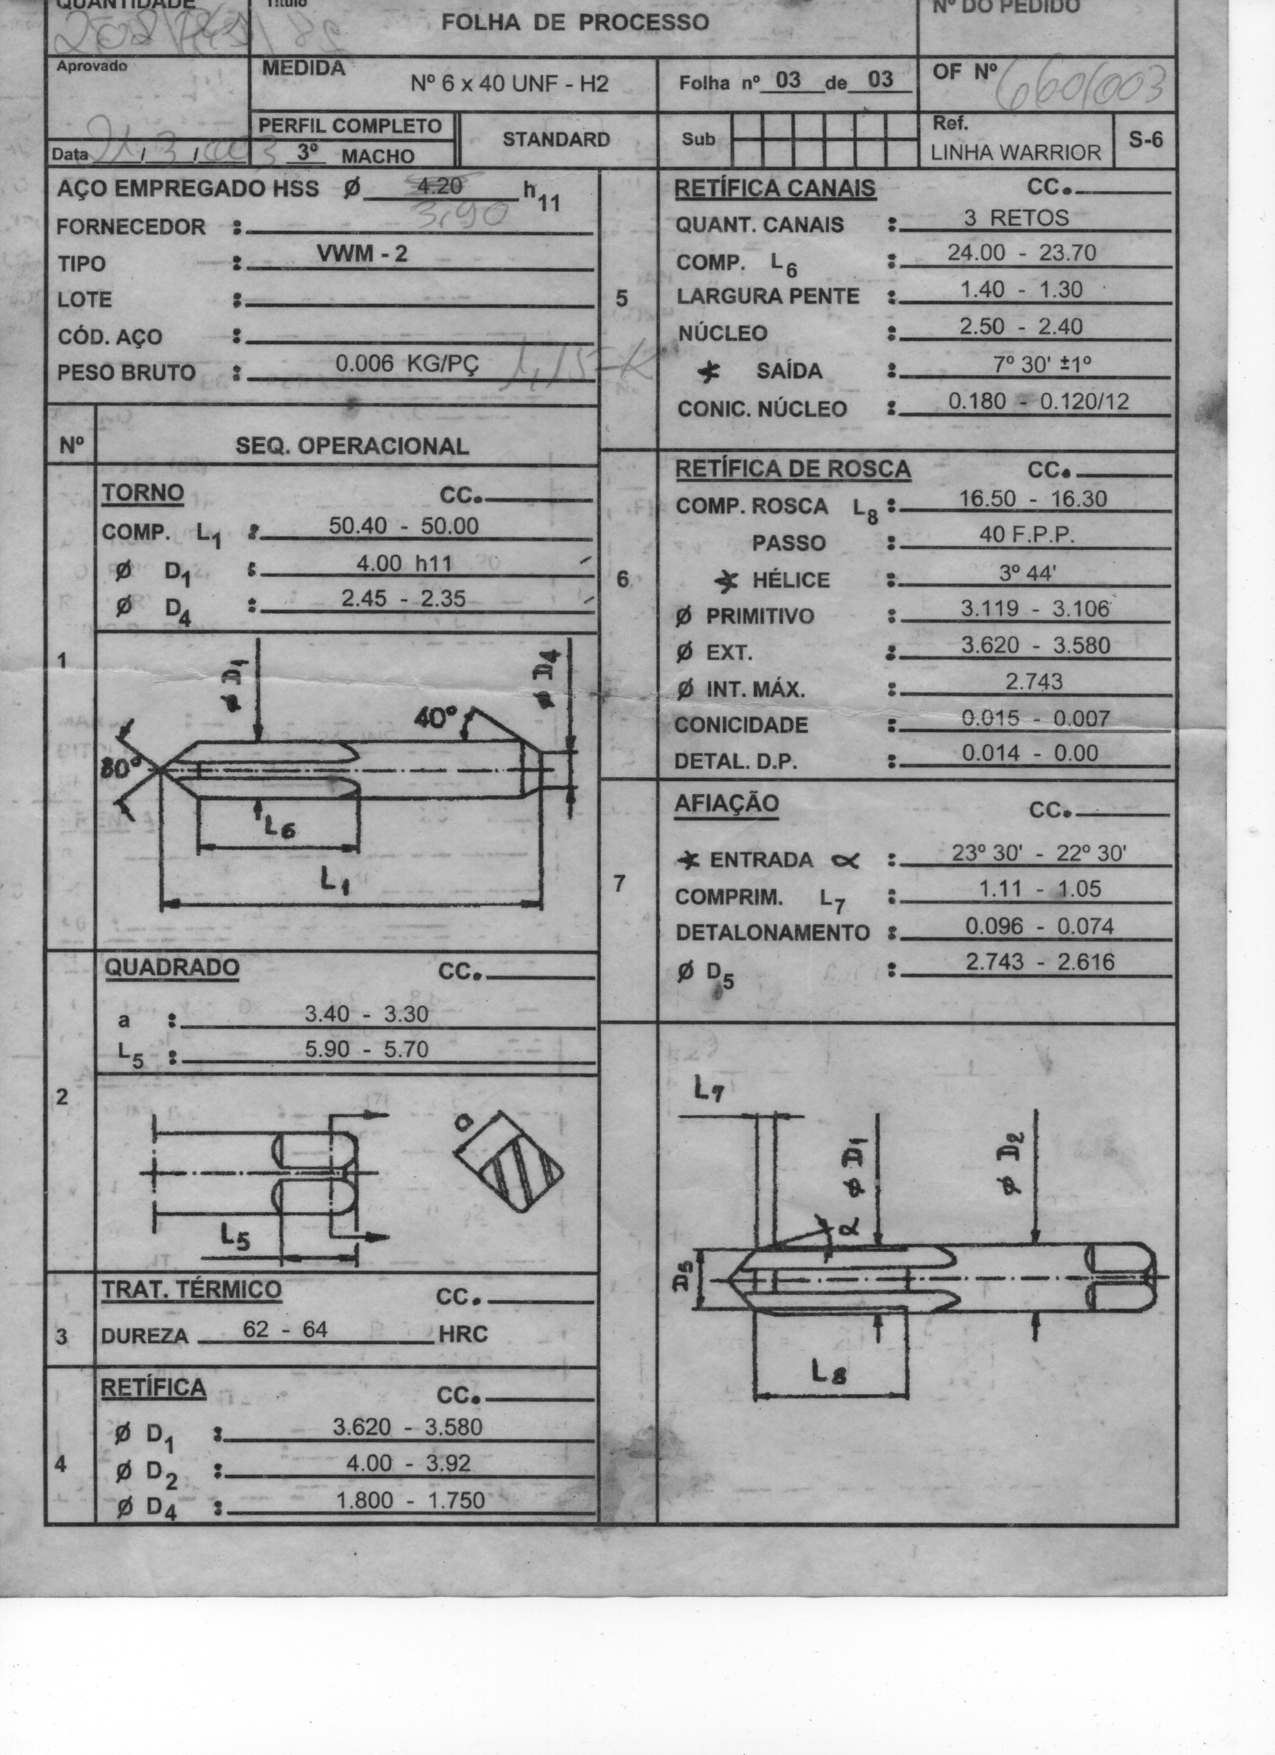 QUANTIDADE
Título
FOLHA DE PROCESSO
Nº DO PEDIDO
Aprovado
MEDIDA
Nº 6 x 40 UNF - H2
Folha nº 03 de 03
OF Nº 660/003
PERFIL COMPLETO
3º MACHO
STANDARD
Sub
Ref.
LINHA WARRIOR
S-6
Data 21/3/003
AÇO EMPREGADO HSS Ø 4.20 h11
3,90
FORNECEDOR :
TIPO : VWM - 2
LOTE :
CÓD. AÇO :
PESO BRUTO : 0.006 KG/PÇ
Nº
SEQ. OPERACIONAL
1
TORNO CC.
COMP. L1 : 50.40 - 50.00
Ø D1 : 4.00 h11
Ø D4 : 2.45 - 2.35
Ø D1
Ø D4
40°
80°
L6
L1
2
QUADRADO CC.
a : 3.40 - 3.30
L5 : 5.90 - 5.70
a
L5
3
TRAT. TÉRMICO CC.
DUREZA 62 - 64 HRC
4
RETÍFICA CC.
Ø D1 : 3.620 - 3.580
Ø D2 : 4.00 - 3.92
Ø D4 : 1.800 - 1.750
5
RETÍFICA CANAIS CC.
QUANT. CANAIS : 3 RETOS
COMP. L6 : 24.00 - 23.70
LARGURA PENTE : 1.40 - 1.30
NÚCLEO : 2.50 - 2.40
SAÍDA : 7º 30' ±1º
CONIC. NÚCLEO : 0.180 - 0.120/12
6
RETÍFICA DE ROSCA CC.
COMP. ROSCA L8 : 16.50 - 16.30
PASSO : 40 F.P.P.
HÉLICE : 3º 44'
Ø PRIMITIVO : 3.119 - 3.106
Ø EXT. : 3.620 - 3.580
Ø INT. MÁX. : 2.743
CONICIDADE : 0.015 - 0.007
DETAL. D.P. : 0.014 - 0.00
7
AFIAÇÃO CC.
ENTRADA α : 23º 30' - 22º 30'
COMPRIM. L7 : 1.11 - 1.05
DETALONAMENTO : 0.096 - 0.074
Ø D5 : 2.743 - 2.616
L7
Ø D1
Ø D2
α
D5
L8